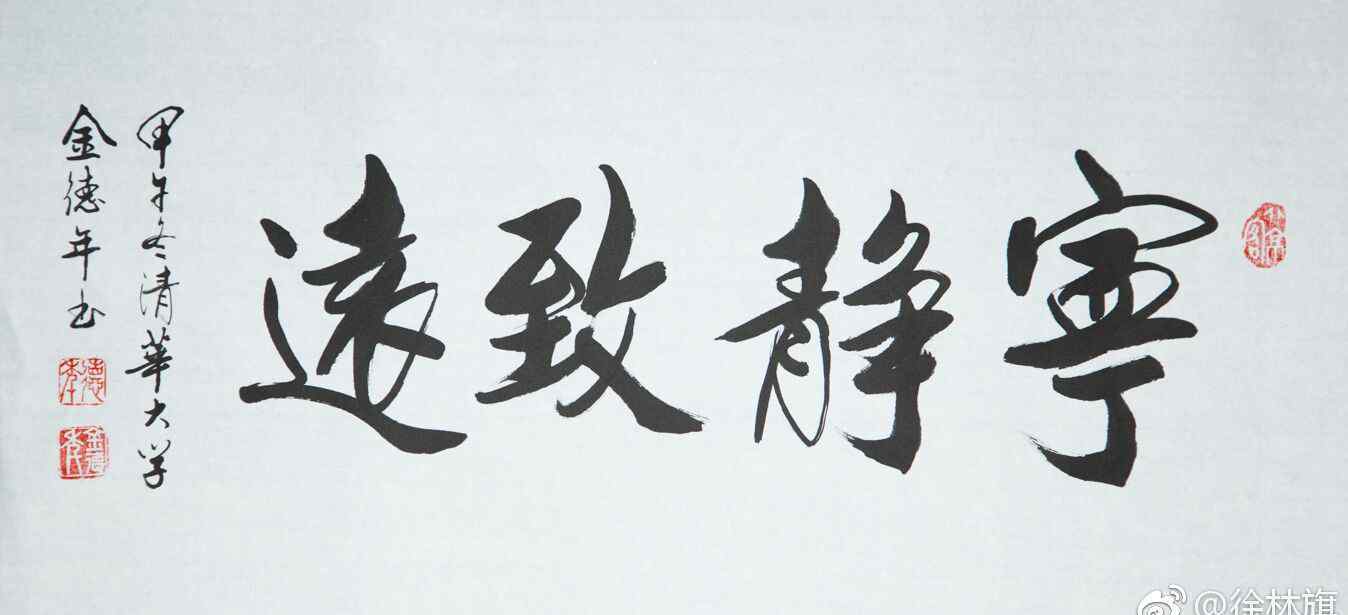 寧静致遠
甲午冬清華大学
金德年书
@徐林旗